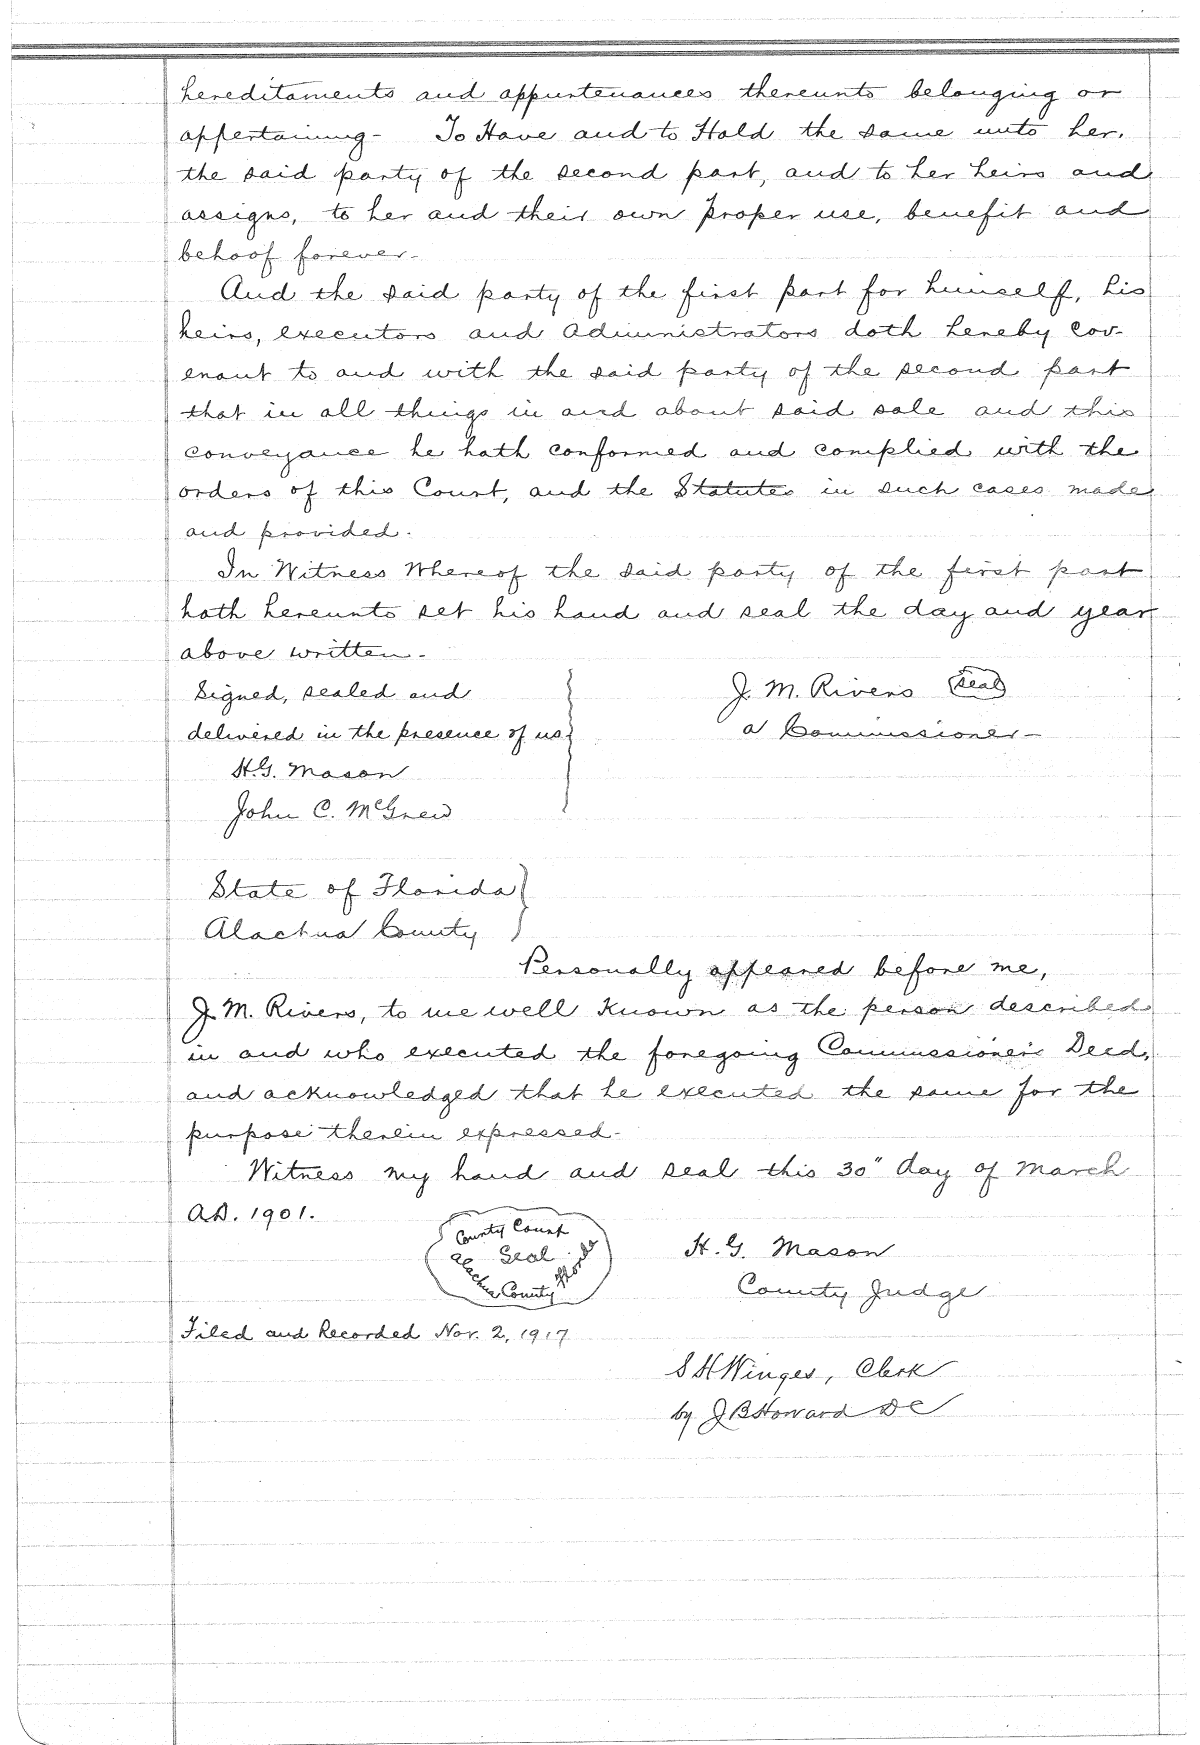 hereditaments and appurtenances thereunto belonging or
appertaining- To Have and to Hold the same unto her,
the said party of the second part, and to her heirs and
assigns, to her and their own proper use, benefit and
behoof forever-
And the said party of the first part for himself, his
heirs, executors and administrators doth hereby Cov-
enant to and with the said party of the second part
that in all things in and about said sale and this
conveyance he hath conformed and complied with the
orders of this Court, and the Statutes in such cases made
and provided.
In Witness Whereof the said party of the first part
hath hereunto set his hand and seal the day and year
above written-
Signed, sealed and
delivered in the presence of us
H.G. Mason
John C. McGrew
J. M. Rivers Seal
a Commissioner-
State of Florida
Alachua County
Personally appeared before me,
J. M. Rivers, to me well Known as the person described
in and who executed the foregoing Commissioner's Deed,
and acknowledged that he executed the same for the
purpose therein expressed-
Witness my hand and seal this 30" day of March
A.D. 1901.
County Court
Seal
Alachua County Florida
H. G. Mason
County Judge
Filed and Recorded Nov. 2, 1917
S H Winges, Clerk
by J B Howard D C